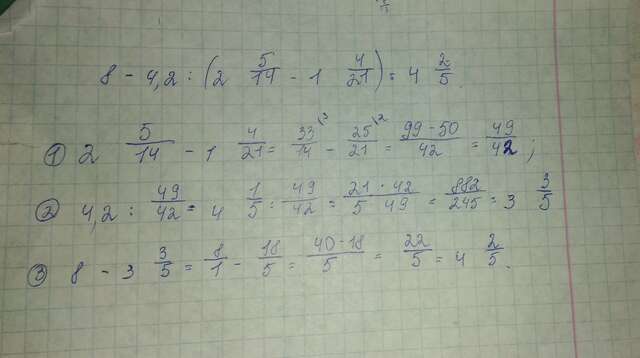 8 - 4,2 : (2 5/14 - 1 4/21) = 4 2/5.
① 2 5/14 - 1 4/21 = 33/14 \3 - 25/21 \2 = 99-50/42 = 49/42;
② 4,2 : 49/42 = 4 1/5 : 49/42 = 21·42/5 49 = 882/245 = 3 3/5
③ 8 - 3 3/5 = 8/1 - 18/5 = 40-18/5 = 22/5 = 4 2/5.